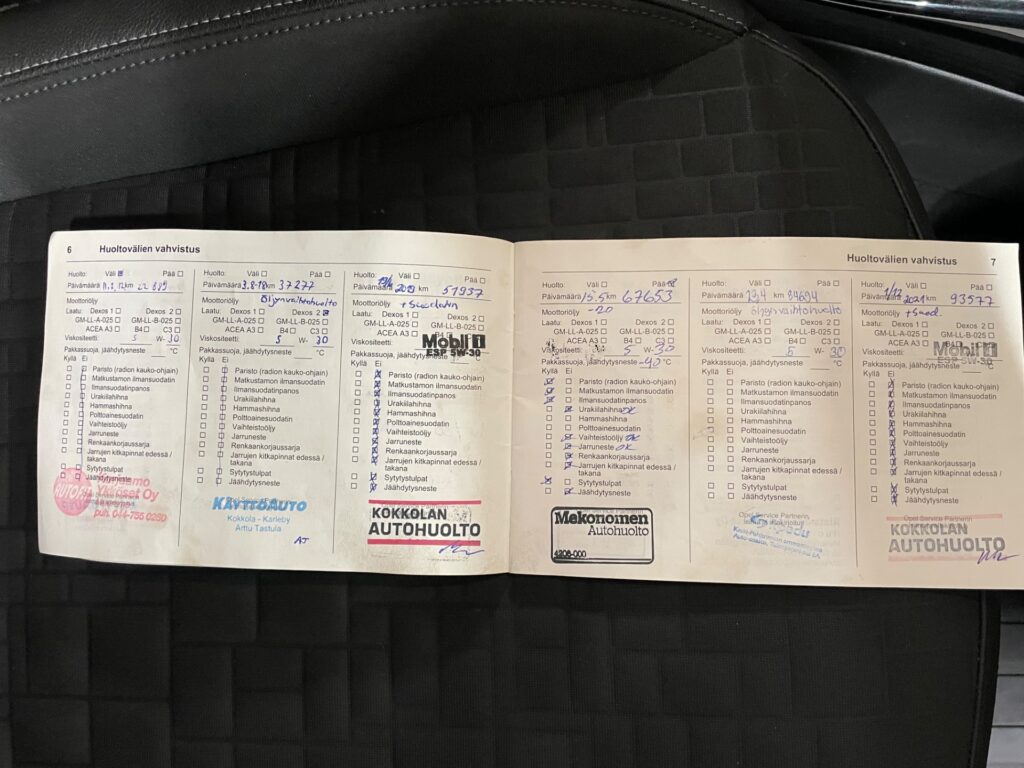 6 Huoltovälien vahvistus
Huolto: Väli ☒ Pää ☐
Päivämäärä km
Moottoriöljy
Laatu: Dexos 1 ☐ Dexos 2 ☐
GM-LL-A-025 ☐ GM-LL-B-025 ☐
ACEA A3 ☐ B4 ☐ C3 ☐
Viskositeetti 5 W- 30
Pakkassuoja, jäähdytysneste °C
Kyllä Ei
☐ ☐ Paristo (radion kauko-ohjain)
☐ ☐ Matkustamon ilmansuodatin
☐ ☐ Ilmansuodatinpanos
☐ ☐ Urakiilahihna
☐ ☐ Hammashihna
☐ ☐ Polttoainesuodatin
☐ ☐ Vaihteistoöljy
☐ ☐ Jarruneste
☐ ☐ Renkaankorjaussarja
☐ ☐ Jarrujen kitkapinnat edessä /
takana
☐ ☐ Sytytystulpat
☐ ☐ Jäähdytysneste
Oy
puh. 044-755 0250
Huolto: Väli ☐ Pää ☐
Päivämäärä 3.8-18 km 37277
Moottoriöljy Öljynvaihtohuolto
Laatu: Dexos 1 ☐ Dexos 2 ☒
GM-LL-A-025 ☐ GM-LL-B-025 ☐
ACEA A3 ☐ B4 ☐ C3 ☐
Viskositeetti 5 W- 30
Pakkassuoja, jäähdytysneste °C
Kyllä Ei
☐ ☐ Paristo (radion kauko-ohjain)
☐ ☐ Matkustamon ilmansuodatin
☐ ☐ Ilmansuodatinpanos
☐ ☐ Urakiilahihna
☐ ☐ Hammashihna
☐ ☐ Polttoainesuodatin
☐ ☐ Vaihteistoöljy
☐ ☐ Jarruneste
☐ ☐ Renkaankorjaussarja
☐ ☐ Jarrujen kitkapinnat edessä /
takana
☐ ☐ Sytytystulpat
☐ ☐ Jäähdytysneste
KÄYTTÖAUTO
Kokkola - Karleby
Arttu Tastula
AT
Huolto: Väli ☐ Pää ☐
Päivämäärä 2019 km 51957
Moottoriöljy + Suodatin
Laatu: Dexos 1 ☐ Dexos 2 ☐
GM-LL-A-025 ☐ GM-LL-B-025 ☐
ACEA A3 ☐ B4 ☐
Mobil 1
Viskositeetti ESP 5W-30
Pakkassuoja, jäähdytysneste °C
Kyllä Ei
☐ ☒ Paristo (radion kauko-ohjain)
☐ ☒ Matkustamon ilmansuodatin
☐ ☒ Ilmansuodatinpanos
☐ ☒ Urakiilahihna
☐ ☒ Hammashihna
☐ ☒ Polttoainesuodatin
☐ ☒ Vaihteistoöljy
☐ ☒ Jarruneste
☐ ☒ Renkaankorjaussarja
☐ ☒ Jarrujen kitkapinnat edessä /
takana
☐ ☒ Sytytystulpat
☐ ☒ Jäähdytysneste
KOKKOLAN
AUTOHUOLTO
Huoltovälien vahvistus 7
Huolto: Väli ☐ Pää ☒
Päivämäärä 15.5 km 67653
Moottoriöljy -20
Laatu: Dexos 1 ☐ Dexos 2 ☐
GM-LL-A-025 ☐ GM-LL-B-025 ☐
ACEA A3 ☐ B4 ☐ C3 ☐
Viskositeetti 5 W- 30
Pakkassuoja, jäähdytysneste -40 °C
Kyllä Ei
☒ ☐ Paristo (radion kauko-ohjain)
☒ ☐ Matkustamon ilmansuodatin
☒ ☐ Ilmansuodatinpanos
☐ ☒ Urakiilahihna OK
☐ ☐ Hammashihna
☐ ☐ Polttoainesuodatin
☐ ☒ Vaihteistoöljy OK
☐ ☒ Jarruneste OK
☐ ☒ Renkaankorjaussarja
☐ ☒ Jarrujen kitkapinnat edessä /
takana
☒ ☐ Sytytystulpat
☐ ☒ Jäähdytysneste
Mekonomen
Autohuolto
4208-000
Huolto: Väli ☐ Pää ☐
Päivämäärä km 84694
Moottoriöljy öljynvaihtohuolto
Laatu: Dexos 1 ☐ Dexos 2 ☐
GM-LL-A-025 ☐ GM-LL-B-025 ☐
ACEA A3 ☐ B4 ☐ C3 ☐
Viskositeetti 5 W- 30
Pakkassuoja, jäähdytysneste °C
Kyllä Ei
☐ ☐ Paristo (radion kauko-ohjain)
☐ ☐ Matkustamon ilmansuodatin
☐ ☐ Ilmansuodatinpanos
☐ ☐ Urakiilahihna
☐ ☐ Hammashihna
☐ ☐ Polttoainesuodatin
☐ ☐ Vaihteistoöljy
☐ ☐ Jarruneste
☐ ☐ Renkaankorjaussarja
☐ ☐ Jarrujen kitkapinnat edessä /
takana
☐ ☐ Sytytystulpat
☐ ☐ Jäähdytysneste
Opel Service Partnerin
Huolto: Väli ☐ Pää ☐
Päivämäärä 1/12 2021 km 93577
Moottoriöljy + Suod.
Laatu: Dexos 1 ☐ Dexos 2 ☐
GM-LL-A-025 ☐ GM-LL-B-025 ☐
ACEA A3 ☐
Mobil 1
Viskositeetti ESP 5W-30
Pakkassuoja, jäähdytysneste °C
Kyllä Ei
☐ ☒ Paristo (radion kauko-ohjain)
☐ ☒ Matkustamon ilmansuodatin
☐ ☒ Ilmansuodatinpanos
☐ ☒ Urakiilahihna
☐ ☒ Hammashihna
☐ ☒ Polttoainesuodatin
☐ ☒ Vaihteistoöljy
☐ ☒ Jarruneste
☐ ☒ Renkaankorjaussarja
☐ ☒ Jarrujen kitkapinnat edessä /
takana
☐ ☒ Sytytystulpat
☐ ☒ Jäähdytysneste
Opel Service Partnerin
KOKKOLAN
AUTOHUOLTO